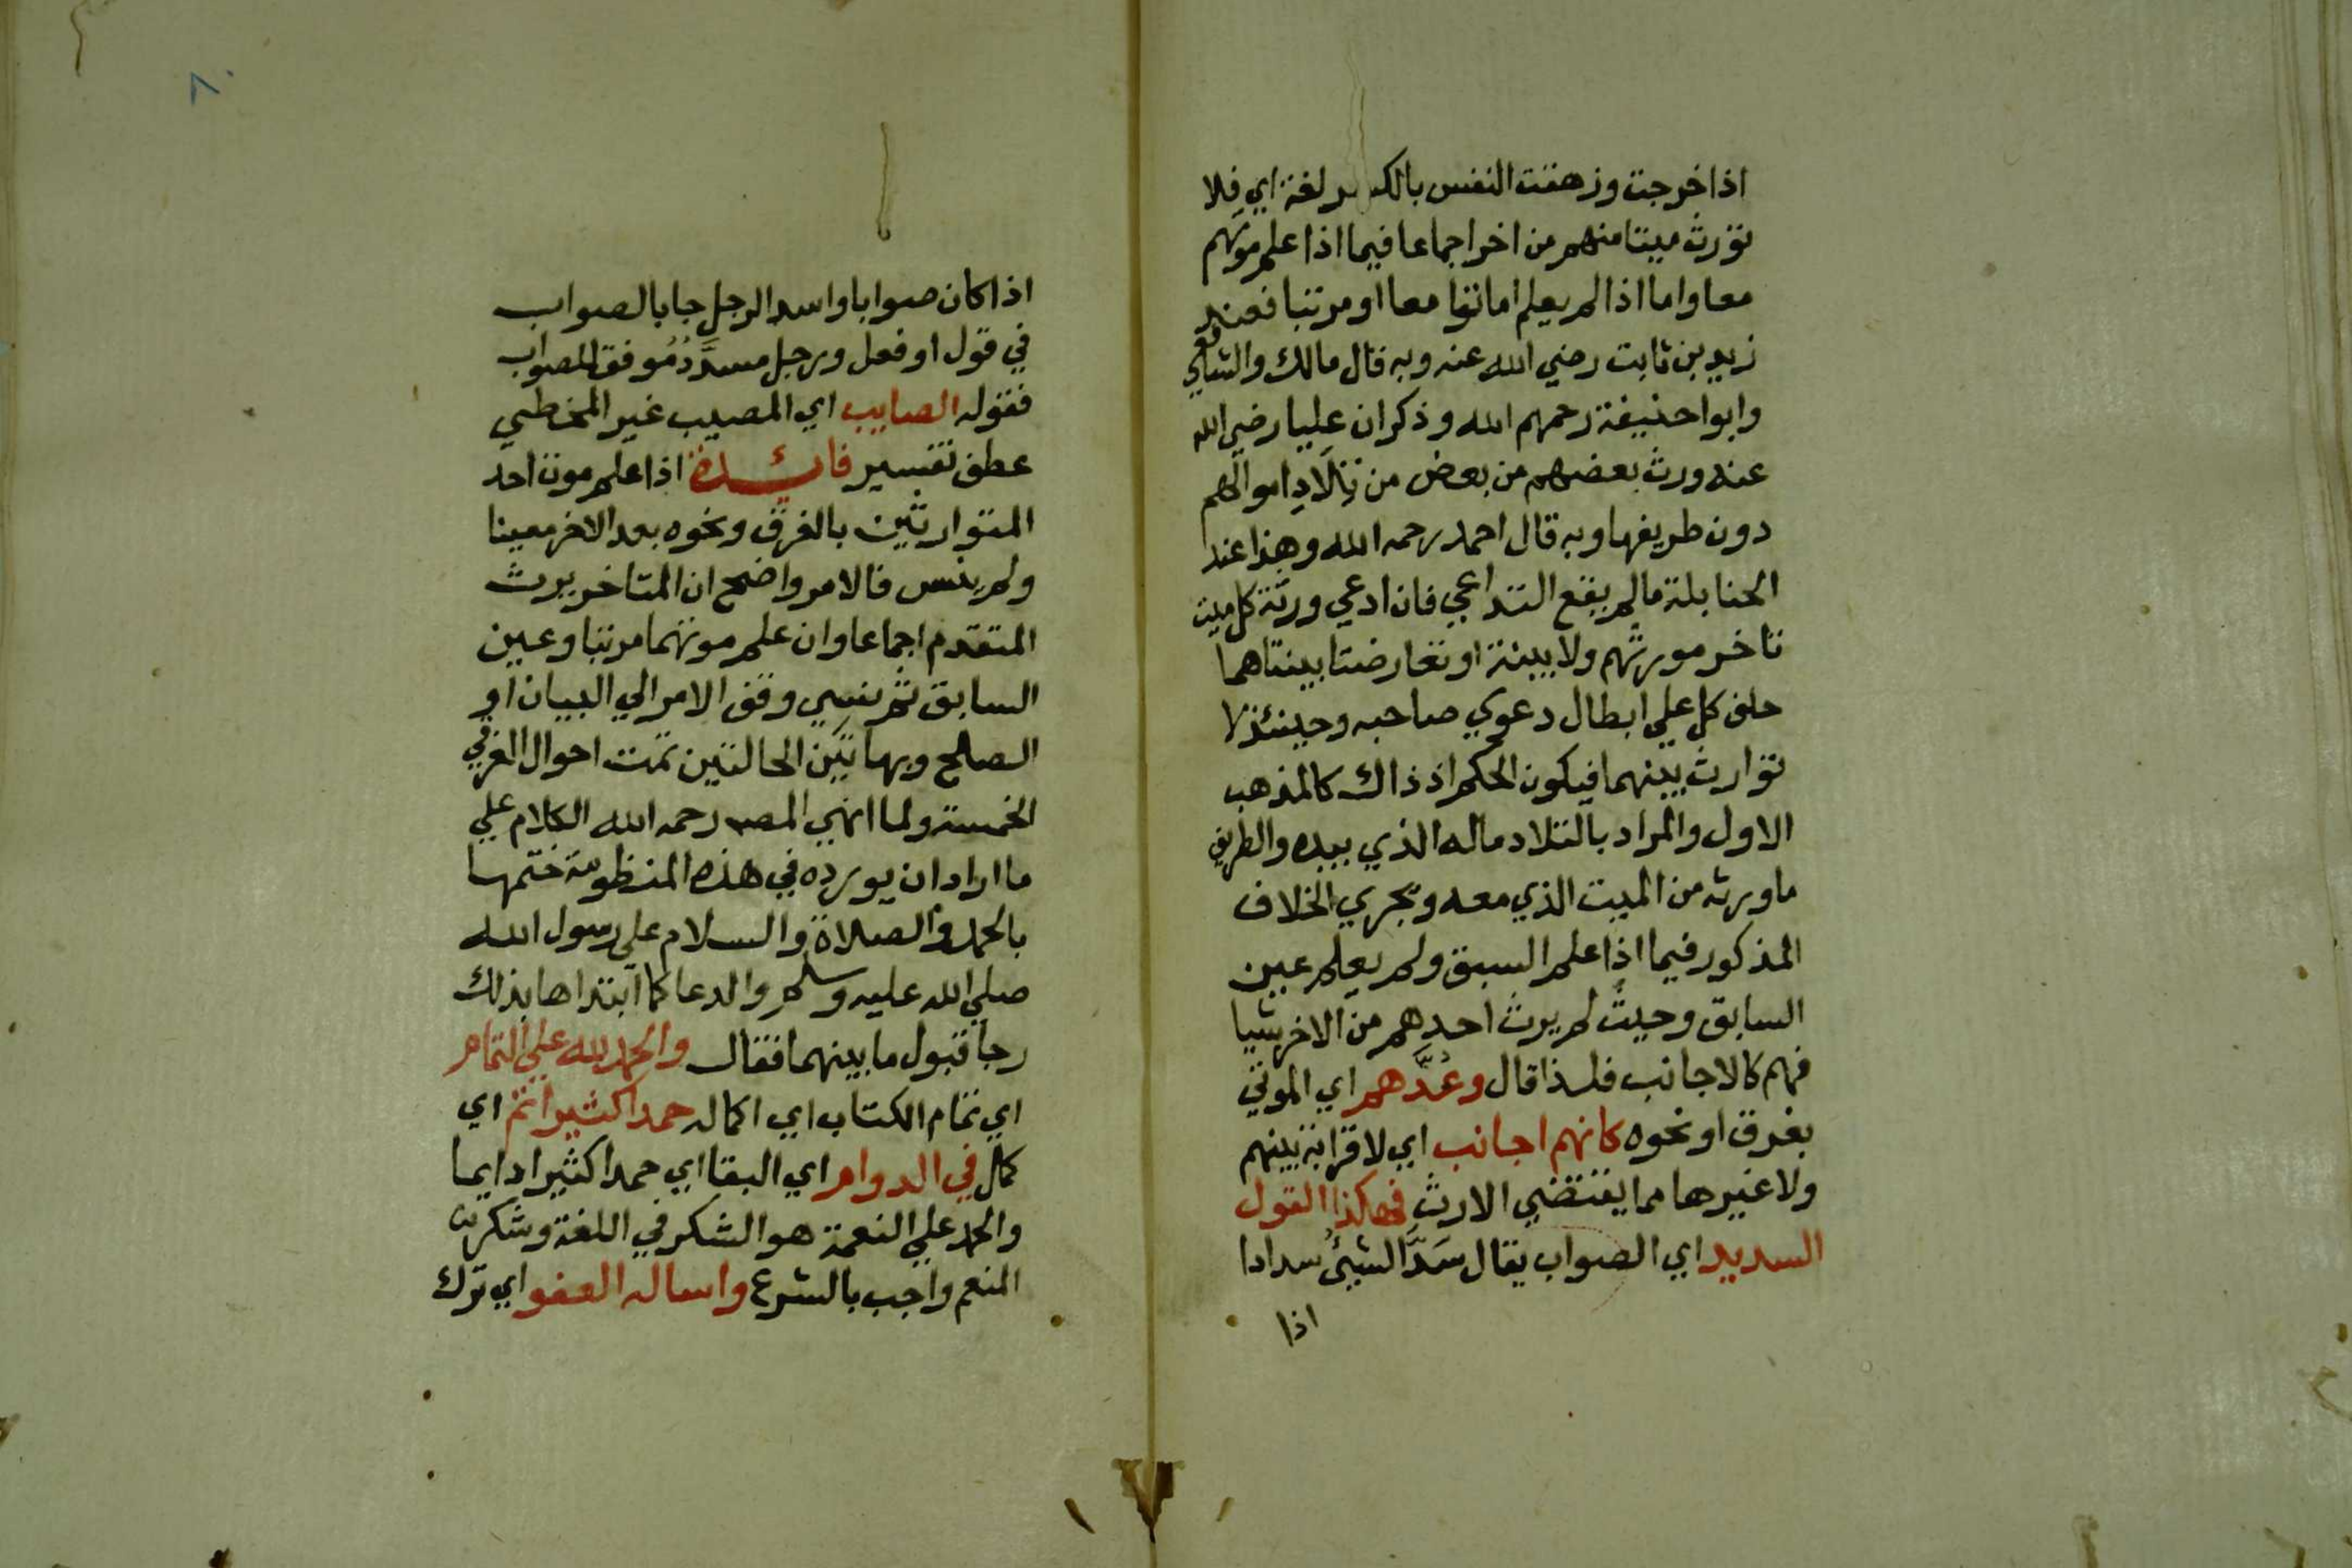 اذا خرجت وزهقت النفس بالكسر لغة اي فلا
تورث ميتا منهم من اخر اجماعا فيما اذا علم موتهم
معا واما اذا لم يعلم اماتوا معا او مرتبا فعند
زيد بن ثابت رضي الله عنه وبه قال مالك والشافعي
وابوا حنيفة رحمهم الله وذكر ان عليا رضي الله
عنه ورث بعضهم من بعض من تِلَادِ اموالهم
دون طريفها وبه قال احمد رحمه الله وهذا عند
الحنابلة ما لم يقع التداعي فان ادعي ورثة كل ميت
تاخر مورثهم ولا بينة او تعارضتا بينتاهما
حلف كل علي ابطال دعوي صاحبه وحينئذ لا
توارث بينهما فيكون الحكم اذ ذاك كالمذهب
الاول والمراد بالتلاد ماله الذي بيده والطريف
ما ورثه من الميت الذي معه ويجري الخلاف
المذكور فيما اذا علم السبق ولم يعلم عين
السابق وحيث لم يرث احدهم من الاخر شيا
فهم كالاجانب فلذا قال وعُدَّهم اي الموتي
بغرق او نحوه كانهم اجانب اي لا قرابة بينهم
ولا غيرها مما يقتضي الارث فهكذا القول
السديد اي الصواب يقال سَدَّ الشيئُ سدادا
اذا
٨٠
اذا كان صوابا واسد الرجل جا بالصواب
في قول او فعل ورجل مسدَّدُ مُوفق للصواب
فقوله الصايب اي المصيب غير المخطي
عطف تفسير فائدة اذا علم موت احد
المتوارثين بالغرق ونحوه بعد الاخر معينا
ولم ينس فالامر واضح ان المتاخر يرث
المتقدم اجماعا وان علم موتهما مرتبا وعين
السابق ثم نسي وقف الامر الي البيان او
الصلح وبهاتين الحالتين تمت احوال الغرقي
الخمسة ولما انهي المصـ رحمه الله الكلام علي
ما اراد ان يورده في هذه المنظومة ختمها
بالحمد والصلاة والسلام علي رسول الله
صلي الله عليه وسلم والدعا كما ابتداها بذلك
رجا قبول ما بينهما فقال والحمد لله علي التمام
اي تمام الكتاب اي اكماله حمدا كثيرا تم اي
كمل في الدوام اي البقا اي حمدا كثيرا دايما
والحمد علي النعمة هو الشكر في اللغة وشكر
المنعم واجب بالشرع واساله العفو اي ترك